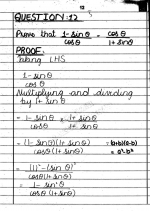 12
QUESTION:12
Prove that 1-sinθ/cosθ = cosθ/1+sinθ
PROOF:
Taking LHS
1-sinθ
cosθ
Multiplying and dividing
by 1+sinθ
= 1-sinθ/cosθ × 1+sinθ/1+sinθ
= (1-sinθ)(1+sinθ)/cosθ(1+sinθ) ∵(a+b)(a-b)
= a²-b²
= (1)²-(sinθ)²
cosθ(1+sinθ)
= 1-sin²θ
cosθ(1+sinθ)